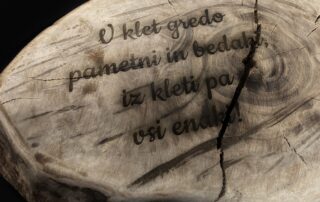 V klet gredo
pametni in bedaki,
iz kleti pa
vsi enaki!